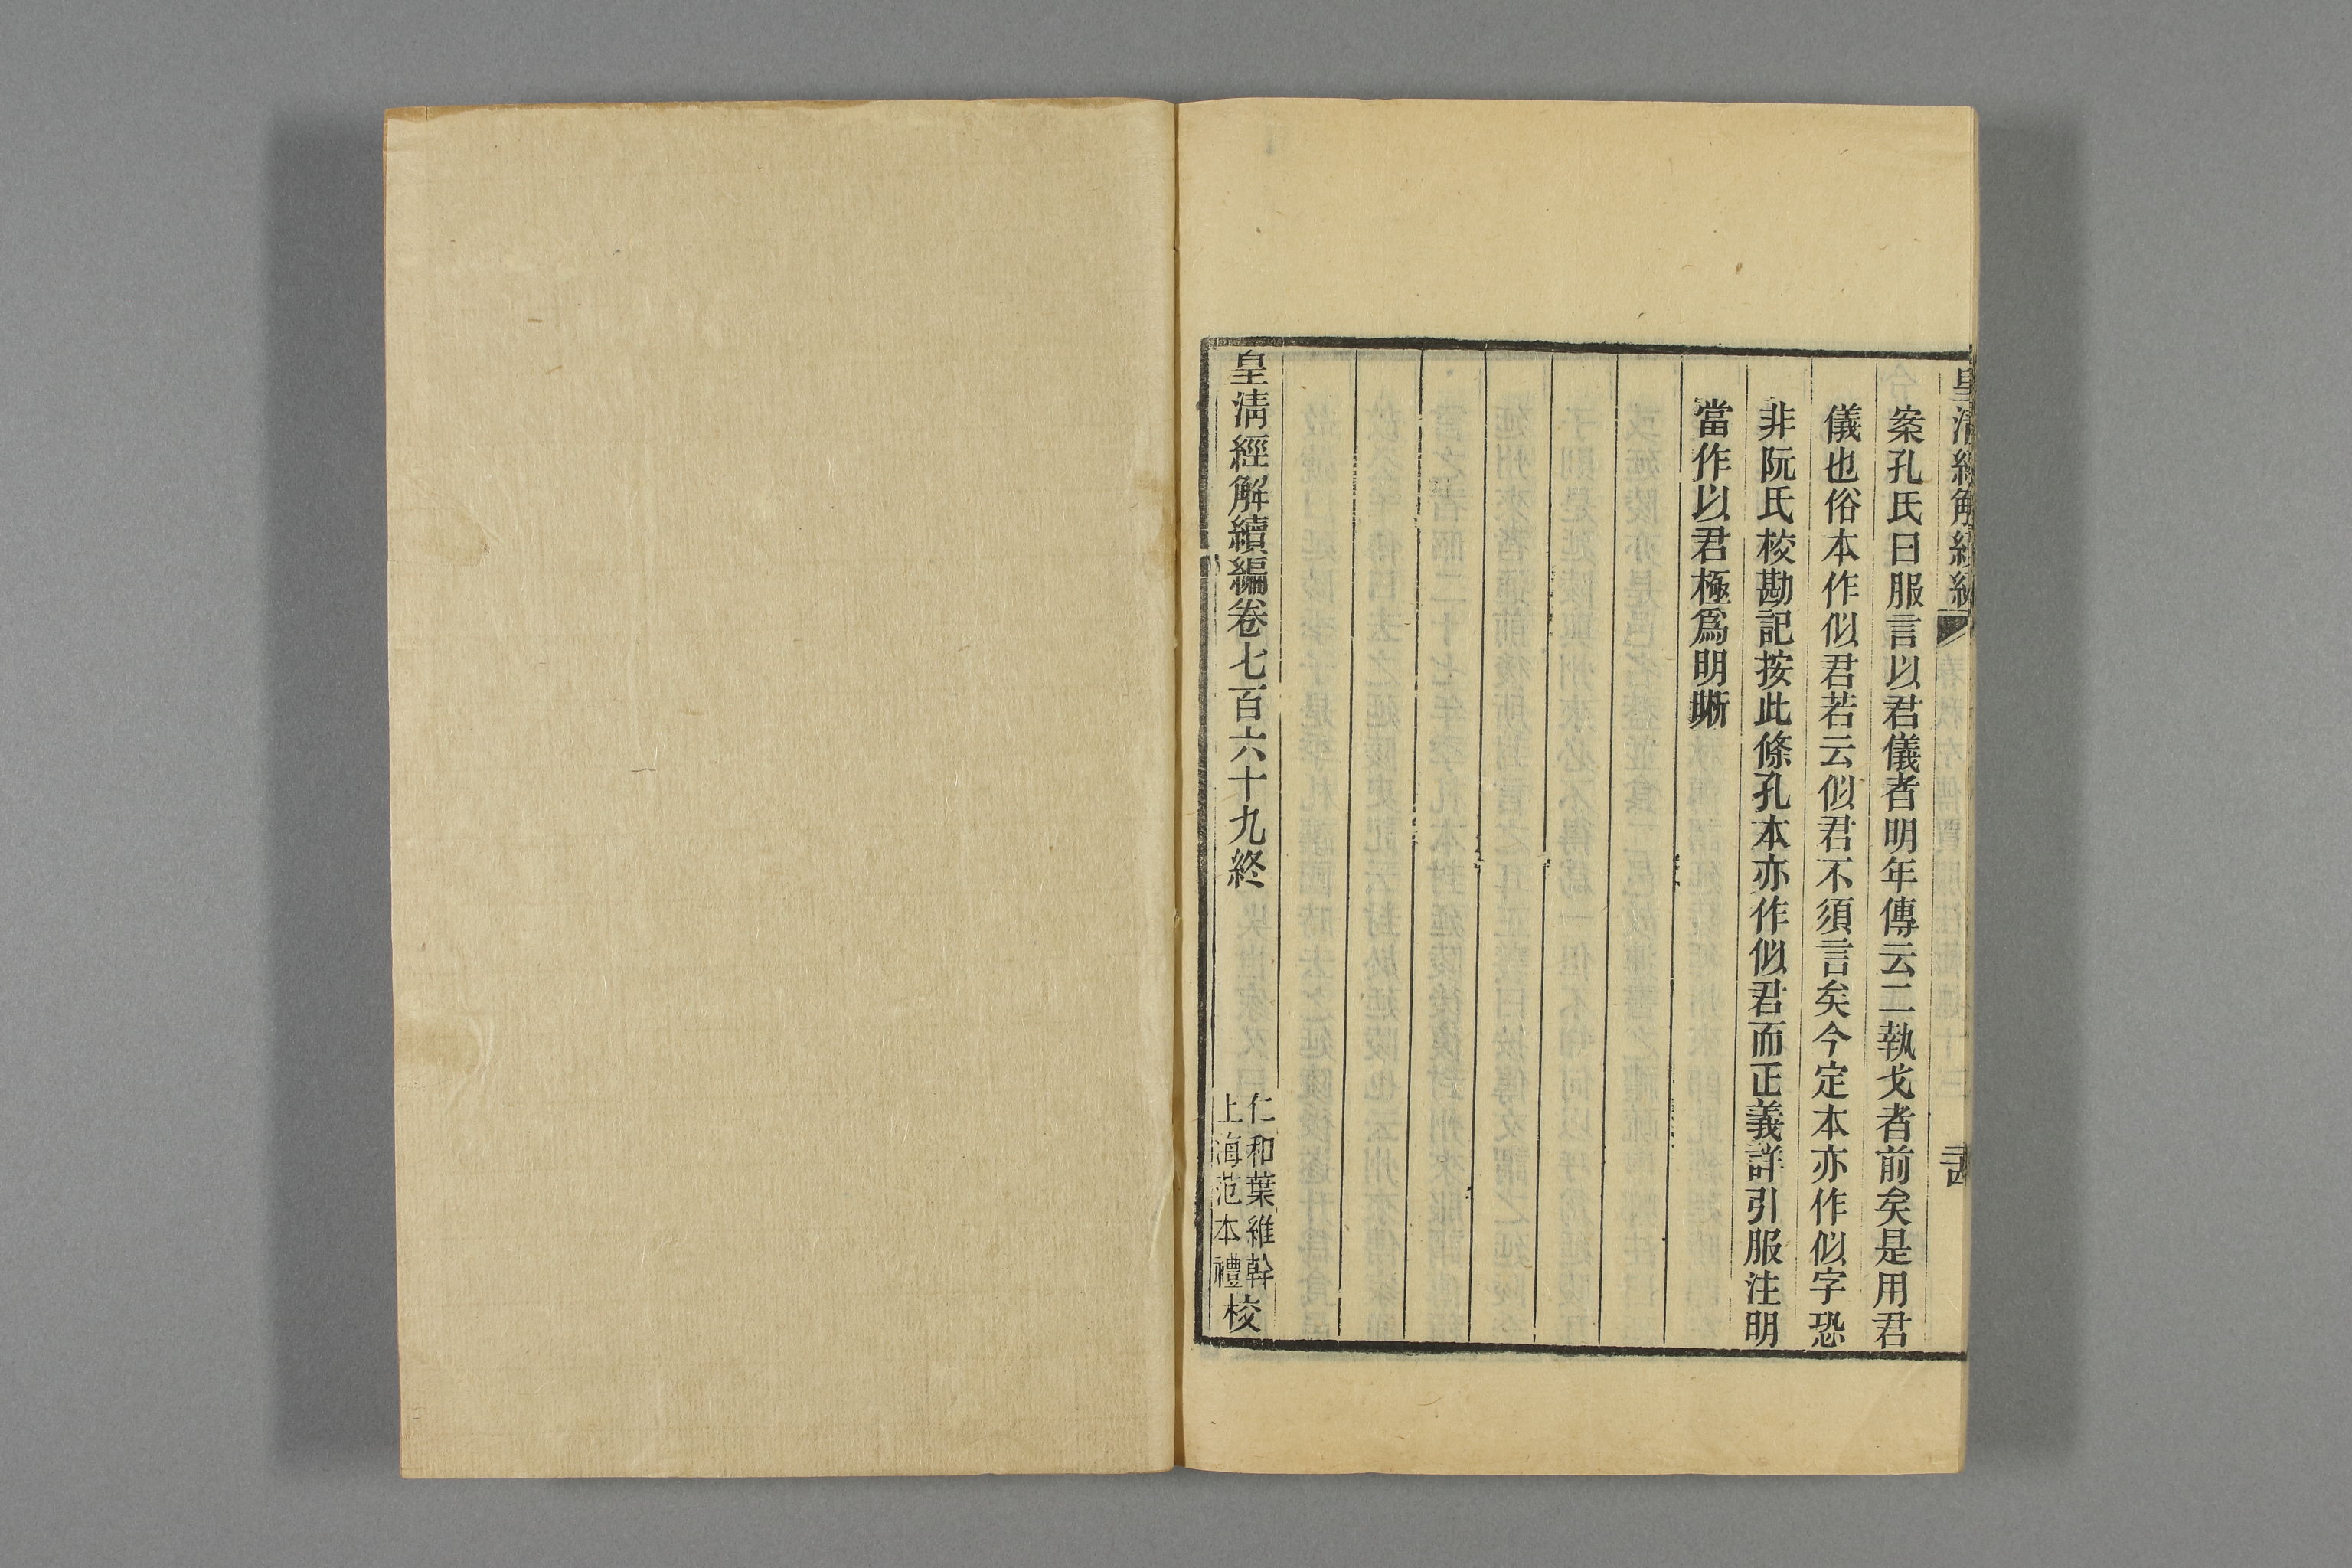 皇清經解續編
案孔氏曰服言以君儀者明年傳云二執戈者前矣是用君
儀也俗本作似君若云似君不須言矣今定本亦作似字恐
非阮氏校勘記按此條孔本亦作似君而正義詳引服注明
當作以君極爲明晰
皇清經解續編卷七百六十九終
仁和葉維幹
上海范本禮
校